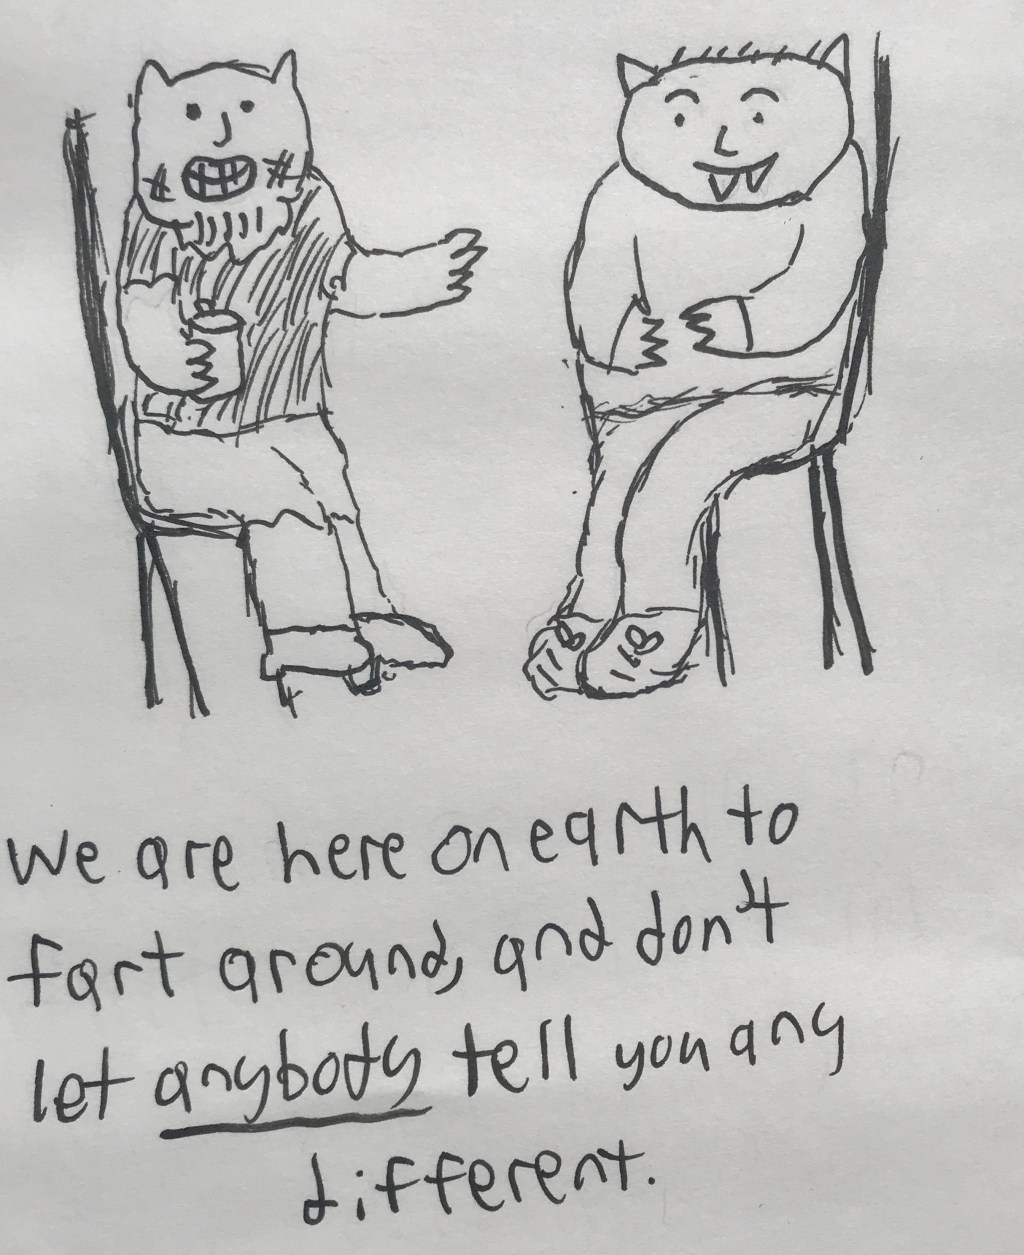 We are here on earth to
fart around, and don't
let anybody tell you any
different.